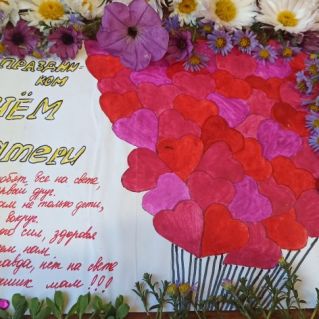 праздни-
ком
нём
атери
юбят все на свете,
ервый друг.
ам не только дети,
вокруг.
сил, здоровья
нам.
равда, нет на свете
мам!!!